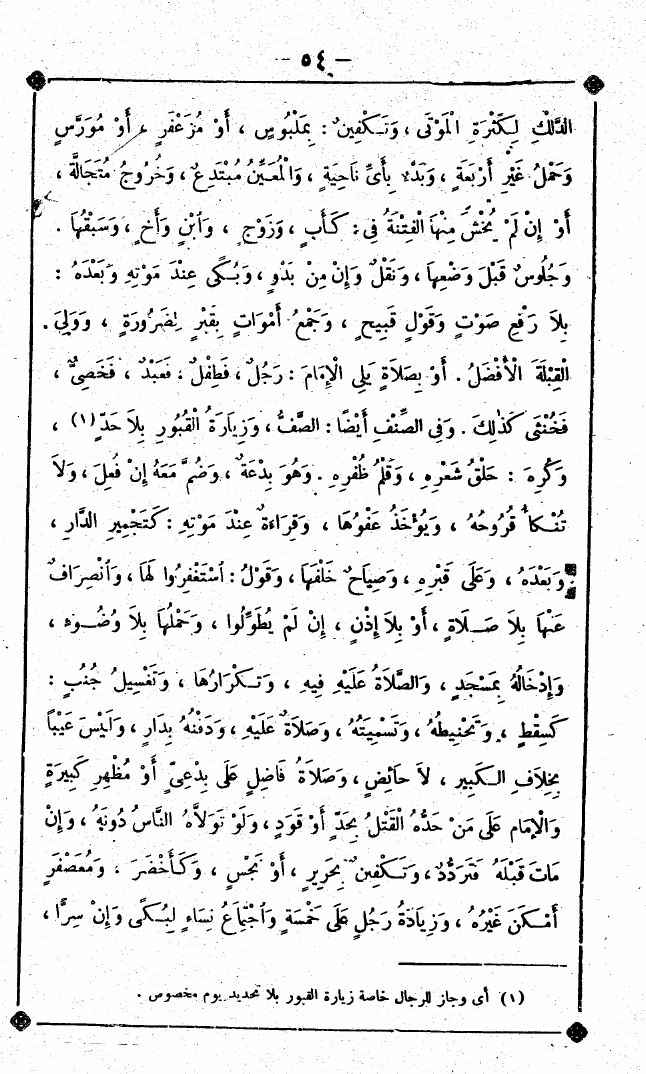 — ٥٤ —
الدَّلْكِ لِكَثْرَةِ الْمَوْتَى ، وَتَكْفِينٌ : بِمَلْبُوسٍ ، أَوْ مُزَعْفَرٍ ، أَوْ مُوَرَّسٍ
وَحَمْلُ غَيْرِ أَرْبَعَةٍ ، وَبَدْءٌ بِأَىِّ نَاحِيَةٍ ، وَالْمُعَيِّنُ مُبْتَدِعٌ ، وَخُرُوجُ مُتَجَالَّةٍ ،
أَوْ إِنْ لَمْ يُخْشَ مِنْهَا الْفِتْنَةُ فِى : كَأَبٍ ، وَزَوْجٍ ، وَابْنٍ وَأَخٍ ، وَسَبْقُهَا .
وَجُلُوسٌ قَبْلَ وَضْعِهَا ، وَنَقْلٌ وَإِنْ مِنْ بَدْوٍ ، وَبُكًى عِنْدَ مَوْتِهِ وَبَعْدَهُ :
بِلاَ رَفْعِ صَوْتٍ وَقَوْلٍ قَبِيحٍ ، وَجَمْعُ أَمْوَاتٍ بِقَبْرٍ لِضَرُورَةٍ ، وَوَلِىَ.
الْقِبْلَةَ الْأَفْضَلُ . أَوْ بِصَلاَةٍ يَلِى الْإِمَامَ : رَجُلٌ ، فَطِفْلٌ ، فَعَبْدٌ ، فَخَصِىٌّ ،
فَخُنْثَى كَذٰلِكَ . وَفِى الصِّنْفِ أَيْضًا : الصَّفُّ ، وَزِيَارَةُ الْقُبُورِ بِلاَ حَدٍّ (١) ،
وَكُرِهَ : حَلْقُ شَعْرِهِ ، وَقَلْمُ ظُفْرِهِ . وَهُوَ بِدْعَةٌ ، وَضُمَّ مَعَهُ إِنْ فُعِلَ ، وَلاَ
تُنْكَأُ قُرُوحُهُ ، وَيُؤْخَذُ عَفْوُهَا ، وَقِرَاءَةٌ عِنْدَ مَوْتِهِ : كَتَجْمِيرِ الدَّارِ ،
وَبَعْدَهُ ، وَعَلَى قَبْرِهِ ، وَصِيَاحٌ خَلْفَهَا ، وَقَوْلُ : اسْتَغْفِرُوا لَهَا ، وَانْصِرَافٌ
عَنْهَا بِلاَ صَلاَةٍ ، أَوْ بِلاَ إِذْنٍ ، إِنْ لَمْ يُطَوِّلُوا ، وَحَمْلُهَا بِلاَ وُضُوءٍ ،
وَإِدْخَالُهُ بِمَسْجِدٍ ، وَالصَّلاَةُ عَلَيْهِ فِيهِ ، وَتَكْرَارُهَا ، وَتَغْسِيلُ جُنُبٍ :
كَسِقْطٍ ، وَتَحْنِيطُهُ ، وَتَسْمِيَتُهُ ، وَصَلاَةٌ عَلَيْهِ ، وَدَفْنُهُ بِدَارٍ ، وَلَيْسَ عَيْبًا
بِخِلاَفِ الْكَبِيرِ ، لاَ حَائِضٍ ، وَصَلاَةُ فَاضِلٍ عَلَى بِدْعِىٍّ أَوْ مُظْهِرِ كَبِيرَةٍ
وَالْإِمَامِ عَلَى مَنْ حَدُّهُ الْقَتْلُ بِحَدٍّ أَوْ قَوَدٍ ، وَلَوْ تَوَلاَّهُ النَّاسُ دُونَهُ ، وَإِنْ
مَاتَ قَبْلَهُ فَتَرَدُّدٌ ، وَتَكْفِينٌ بِحَرِيرٍ ، أَوْ نَجْسٍ ، وَكَأَخْضَرَ ، وَمُعَصْفَرٍ
أَمْكَنَ غَيْرُهُ ، وَزِيَادَةُ رَجُلٍ عَلَى خَمْسَةٍ وَاجْتِمَاعُ نِسَاءٍ لِبُكًى وَإِنْ سِرًّا ،
(١) أى وجاز للرجال خاصة زيارة القبور بلا تحديد يوم مخصوص .